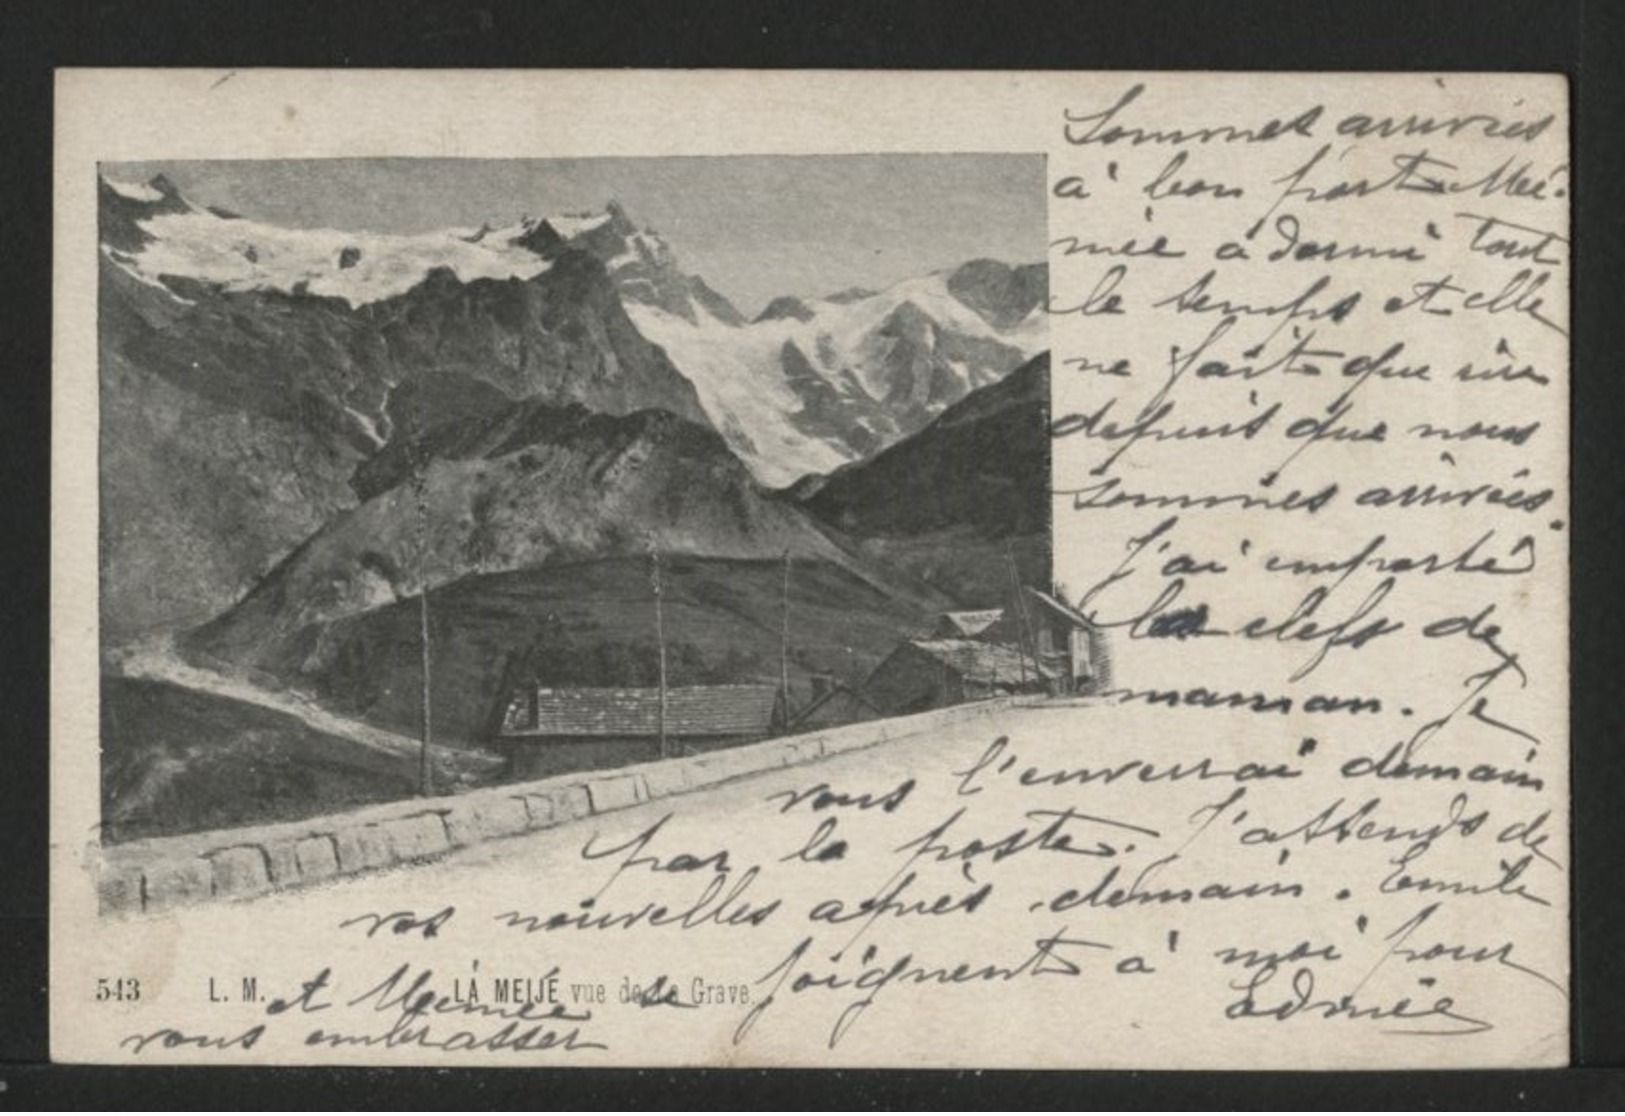 Sommes arrivés
à bon port. Mé-
mée a dormi tout
le temps et elle
ne fait que rire
depuis que nous
sommes arrivés.
J'ai emporté
les clefs de
maman. Je
vous l'enverrai demain
par la poste. J'attends de
vos nouvelles après demain. Emile
et Mémée se joignent à moi pour
vous embrasser
Edmée
543 L. M. LA MEIJE vue de La Grave.